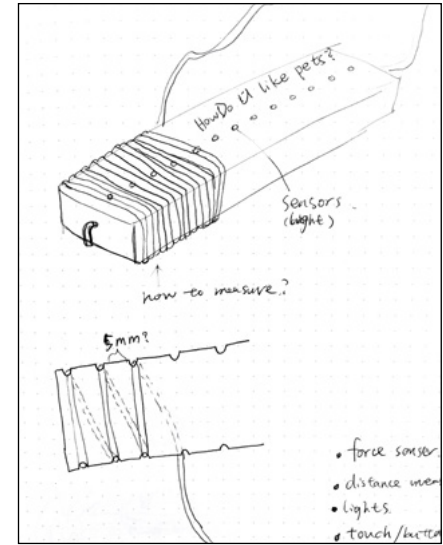 HowDo U like pets?
sensors
(light)
how to measure?
5mm?
• force senser.
• distance mea
• lights.
• touch/butto